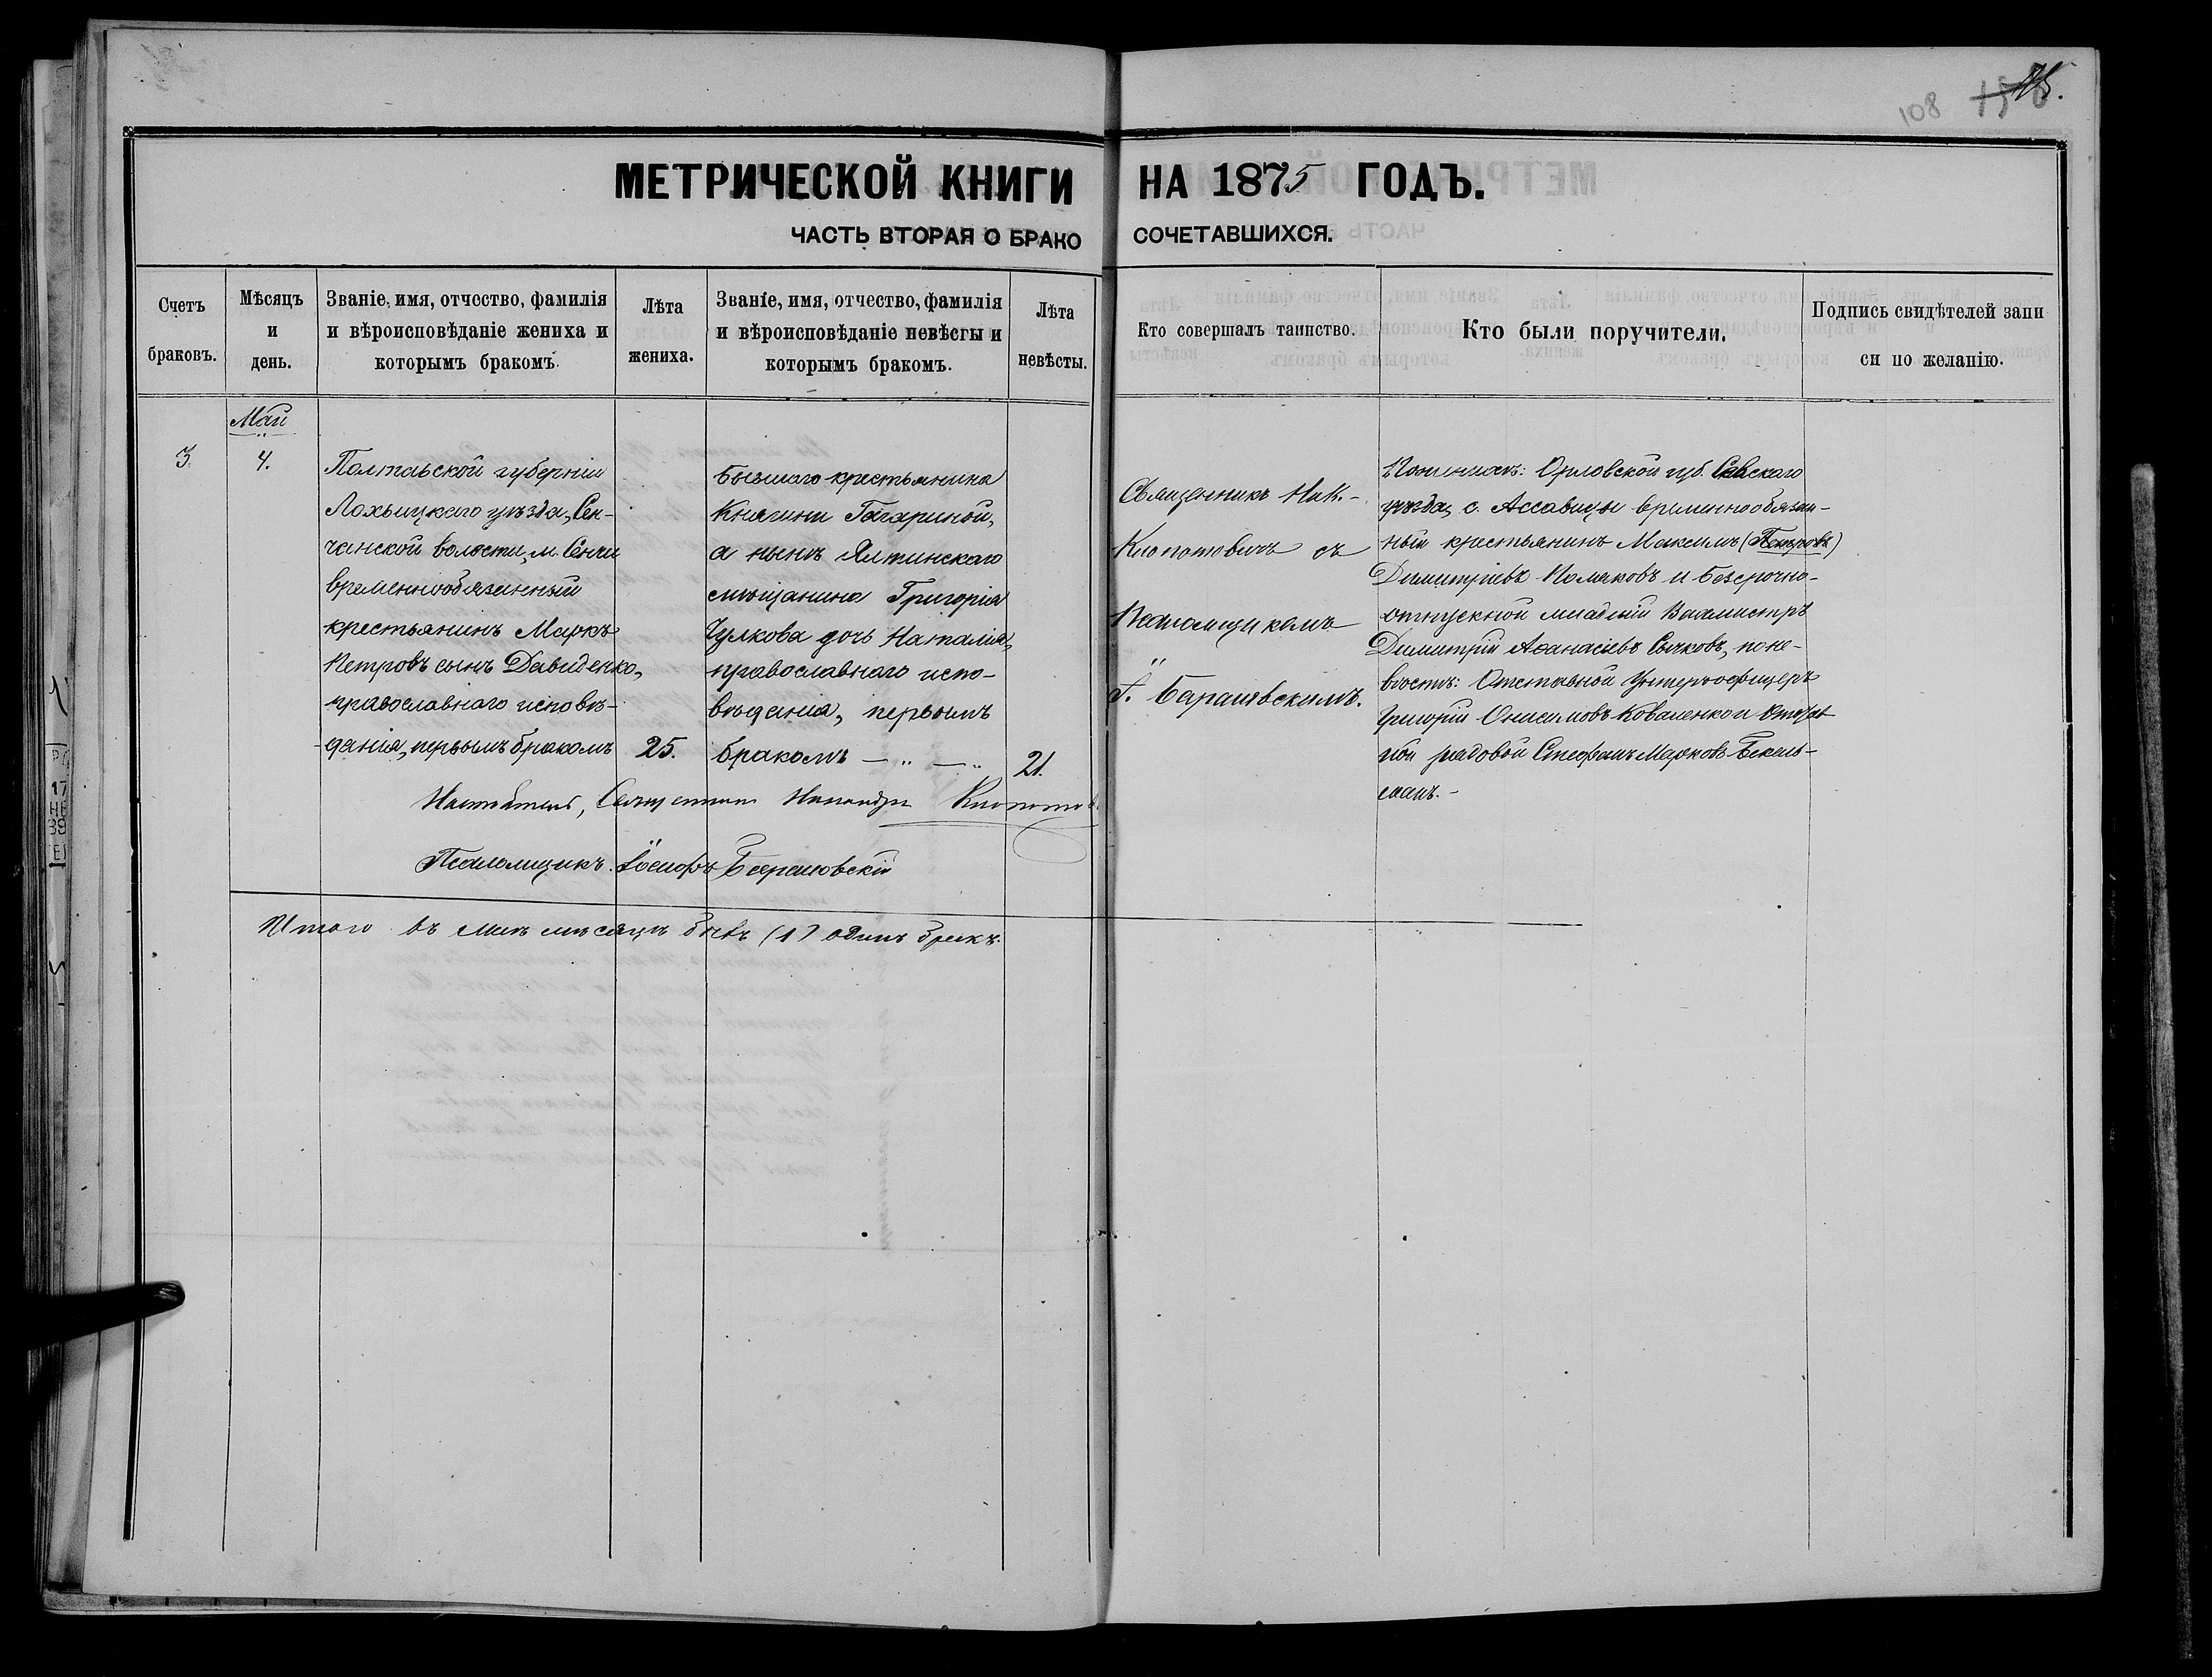 108
МЕТРИЧЕСКОЙ КНИГИ НА 1875 ГОДЪ.
ЧАСТЬ ВТОРАЯ О БРАКО СОЧЕТАВШИХСЯ.
Счетъ браковъ.
Мѣсяцъ и день.
Званіе, имя, отчество, фамилія
и вѣроисповѣданіе жениха и
которымъ бракомъ.
Лѣта
жениха.
Званіе, имя, отчество, фамилія
и вѣроисповѣданіе невѣсты и
которымъ бракомъ.
Лѣта
невѣсты.
Кто совершалъ таинство.
Кто были поручители.
Подпись свидѣтелей запи
си по желанію.
Май
3
4.
Полтавской губерніи
Лохвицкаго уѣзда, Сен-
чанской волости, м. Сенчи
временнообязанный
крестьянинъ Маркъ
Петровъ сынъ Давиденко,
православнаго исповѣ-
данія, первымъ бракомъ
25.
Бывшаго крестьянина
Княгини Гагариной,
а нынѣ Ялтинскаго
мѣщанина Григорія
Чулкова дочь Наталія,
православнаго испо-
вѣданія, первымъ
бракомъ — „ — „
21.
Священникъ Ник.
Клопотовичъ съ
Псаломщикомъ
І. Барановскимъ.
По женихѣ: Орловской губ. Севскаго
уѣзда, с. временнообязан-
ный крестьянинъ Максимъ (Петровъ)
Димитріевъ Поляковъ и безсрочно-
отпускной младшій Вахмистръ
Димитрій Аѳанасіевъ Сычковъ, по не-
вѣстѣ: Отставной Унтеръ-офицеръ
Григорій Онисимовъ Коваленко и
ной рядовой Стефанъ Марковъ Бекель-
манъ.-
Настоятель, Священникъ Никандръ
Псаломщикъ Іосифъ Барановскій
Итого въ маѣ мѣсяцѣ бывъ (1) одинъ бракъ.